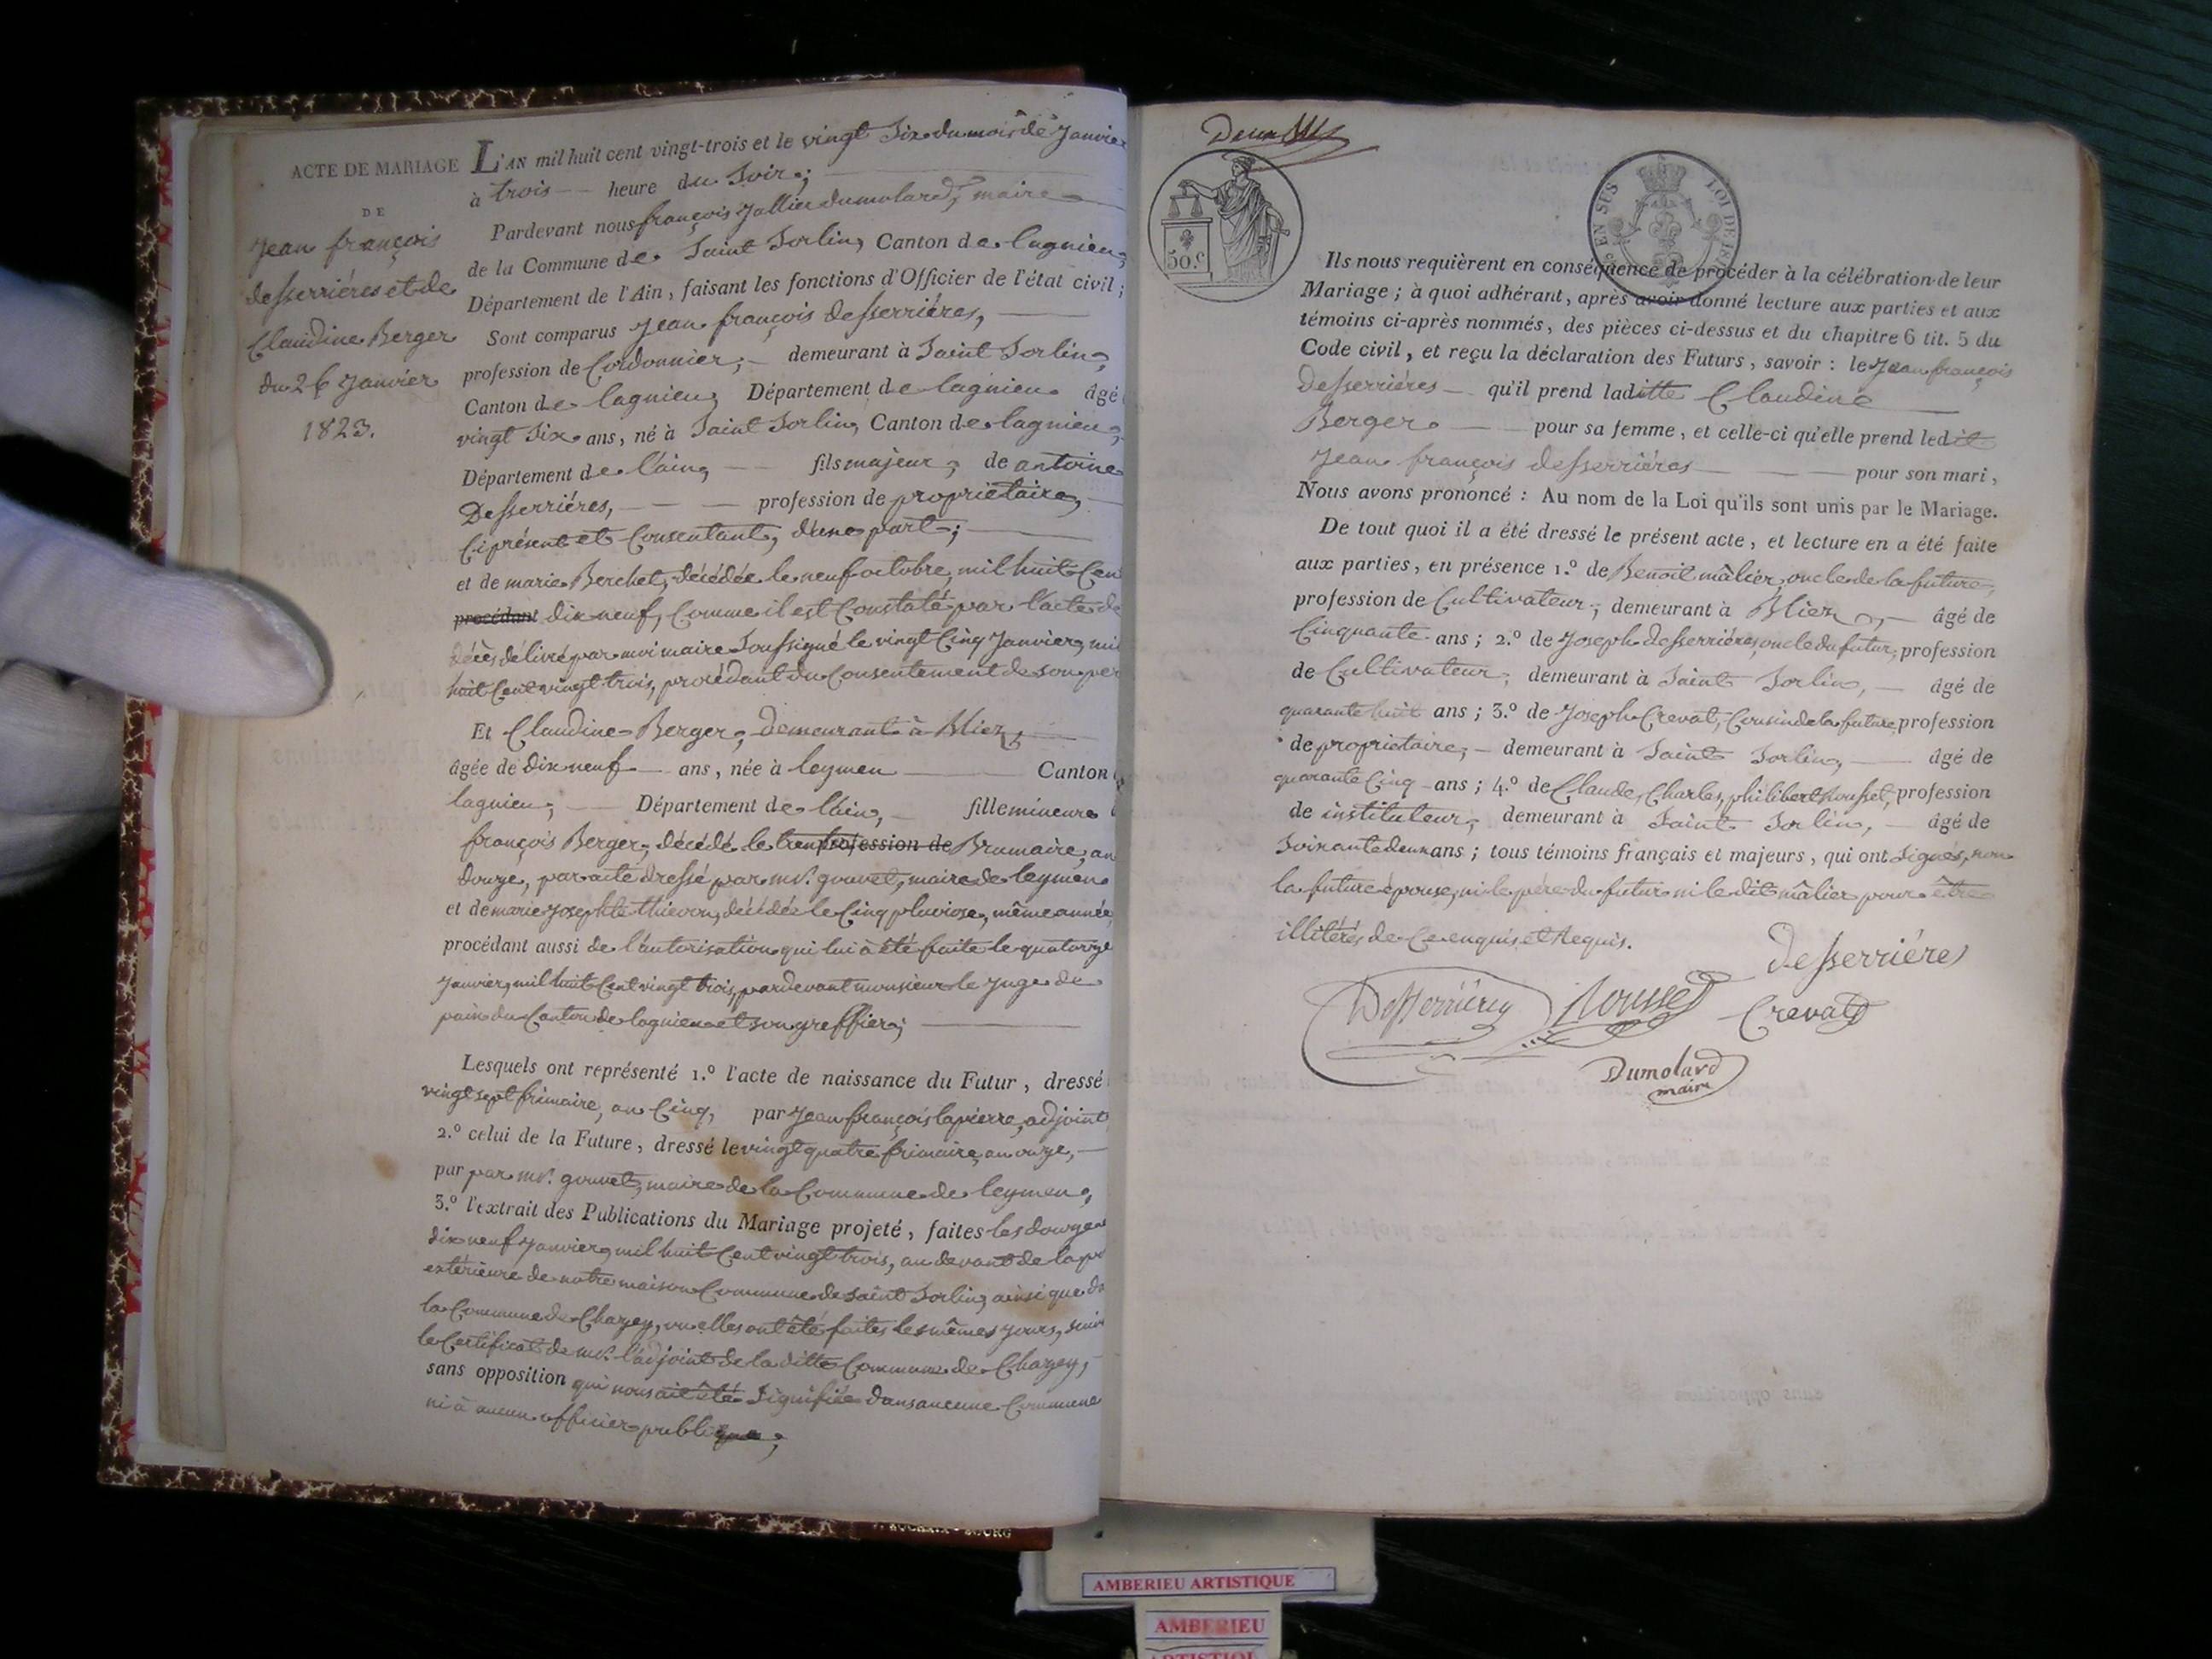 ACTE DE MARIAGE
DE
Jean françois
desserriéres et de
Claudine Berger
du 26 Janvier
1823.
L'AN mil huit cent vingt-trois et le vingt Six du mois de Janvier
à trois heure du Soir;
Pardevant nous françois Jallier dumolard, maire
de la Commune de Saint Sorlin, Canton de lagnieu,
Département de l'Ain, faisant les fonctions d'Officier de l'état civil;
Sont comparus Jean françois desserriéres,
profession de Cordonnier, demeurant à Saint Sorlin,
Canton de lagnieu, Département de lagnieu âgé
vingt Six ans, né à Saint Sorlin, Canton de lagnieu,
Département de l'ain, fils majeur, de antoine
Desserriéres, profession de propriétaire,
Ci présent et Consentant, d'une part;
et de marie Berchet, décédée le neuf octobre, mil huit Cen
procédant dix neuf, Comme il est Constaté par l'acte de
décès délivré par moi maire Soussigné le vingt Cinq Janvier, mil
huit Cent vingt trois, procédant du Consentement de son per
Et Claudine Berger, demeurant à Bliez,
âgée de dix neuf ans, née à leymen Canton
lagnieu, Département de l'ain, fille mineure
françois Berger, décédé le profession de Brumaire, an
douze, par acte dressé par mr. gouvet, maire de leymen
et de marie Josephte thievon, décédée le Cinq pluviose, même année,
procédant aussi de l'autorisation qui lui à été faite le quatorze
Janvier, mil huit Cent vingt trois, pardevant monsieur le Juge de
paix du Canton de lagnieu et son greffier;
Lesquels ont représenté 1.º l'acte de naissance du Futur, dressé
vingt sept frimaire, an Cinq, par Jean françois lapierre, adjoint
2.º celui de la Future, dressé le vingt quatre frimaire, an onze,
par par mr. gouvet, maire de la Commune de leymen,
3.º l'extrait des Publications du Mariage projeté, faites les douze et
dix neuf Janvier, mil huit Cent vingt trois, au devant de la po
extérieure de notre maison Commune de Saint Sorlin, ainsi que da
la Commune de Chazey, ou elles ont été faites les mêmes Jours, suiv
le Certificat de mr. l'adjoint de la ditte Commune de Chazey,
sans opposition qui nous ait été Signifiée dans aucune Commune
ni à aucun officier publique;
50.c
EN SUS
LOI DE 181
Ils nous requièrent en conséquence de procéder à la célébration de leur
Mariage; à quoi adhérant, après avoir donné lecture aux parties et aux
témoins ci-après nommés, des pièces ci-dessus et du chapitre 6 tit. 5 du
Code civil, et reçu la déclaration des Futurs, savoir: le Jean françois
Desserriéres qu'il prend laditte Claudine
Berger pour sa femme, et celle-ci qu'elle prend ledit
Jean françois desserriéres pour son mari,
Nous avons prononcé: Au nom de la Loi qu'ils sont unis par le Mariage.
De tout quoi il a été dressé le présent acte, et lecture en a été faite
aux parties, en présence 1.º de Benoit mâlier, oncle de la future,
profession de Cultivateur, demeurant à Bliez, âgé de
Cinquante ans; 2.º de Joseph desserriéres, oncle du futur, profession
de Cultivateur, demeurant à Saint Sorlin, âgé de
quarante huit ans; 3.º de Joseph Crevat, Cousin de la future, profession
de propriétaire, demeurant à Saint Sorlin, âgé de
quarante Cinq ans; 4.º de Claude, Charles, philibert Rousset, profession
de instituteur, demeurant à Saint Sorlin, âgé de
Soixante deux ans; tous témoins français et majeurs, qui ont Signés, non
la future épouse, ni le père du futur ni le dit mâlier pour être
illitérés de Ce enquis et Requis.
desserriéres
Desserriérey Rousset Crevat
Dumolard
maire
AMBERIEU ARTISTIQUE
AMBERIEU
ARTISTIQU